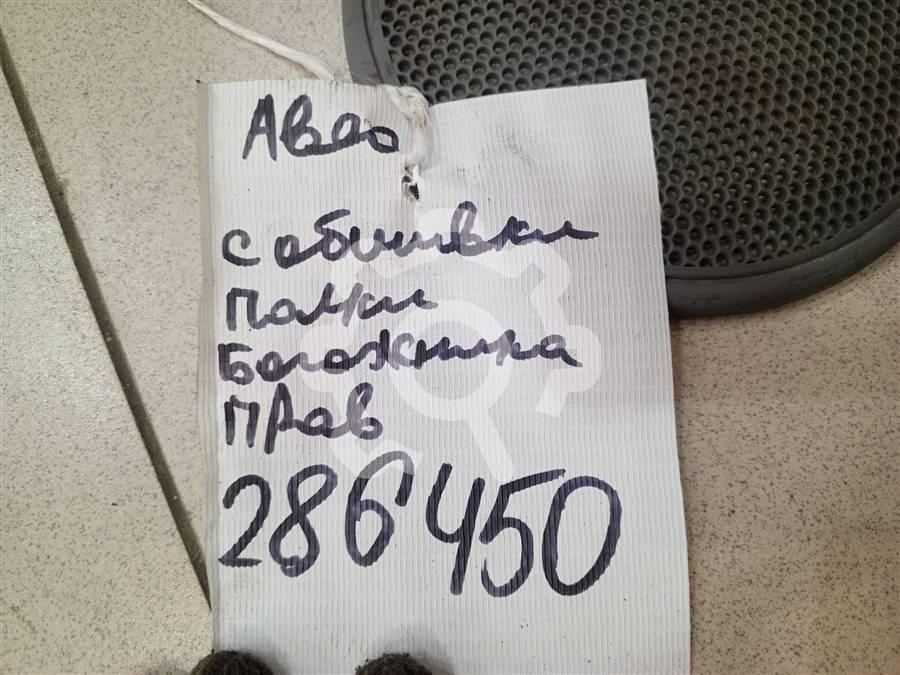 Авео
с обшивки
полки
Богожника
прав
286450